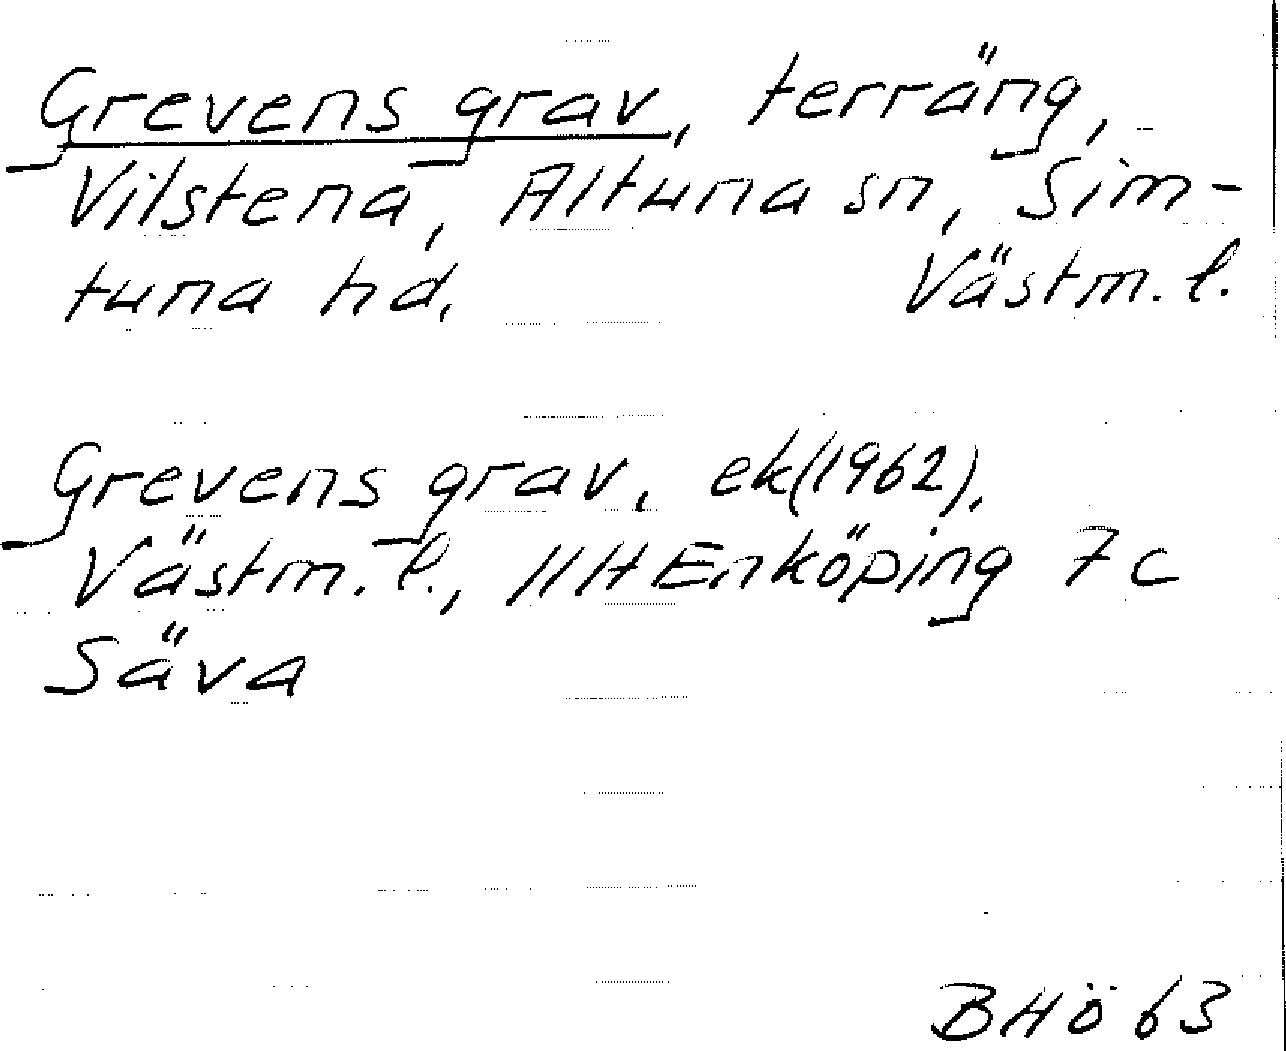 Grevens grav, terräng,
Vilstena, Altuna sn, Sim-
tuna hd. Västm. l.
Grevens grav, ek(1962),
Västm. l., 11H Enköping 7c
Säva
BHö 63